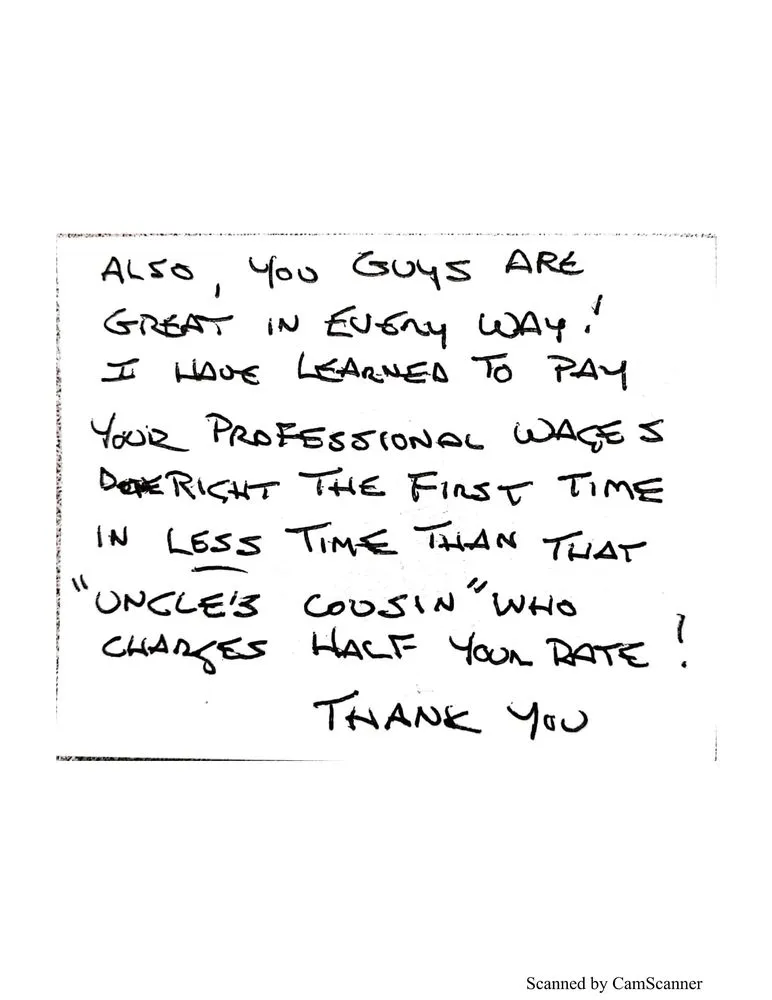 ALSO, YOU GUYS ARE
GREAT IN EVERY WAY!
I HAVE LEARNED TO PAY
YOUR PROFESSIONAL WAGES
DONE RIGHT THE FIRST TIME
IN LESS TIME THAN THAT
"UNCLE'S COUSIN" WHO
CHARGES HALF YOUR RATE!
THANK YOU
Scanned by CamScanner